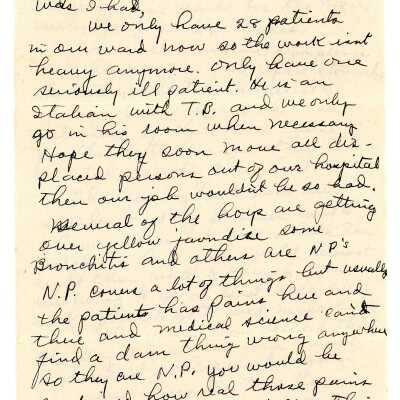 was I had,
we only have 28 patients
in our ward now so the work isnt
heavy anymore. Only have one
seriously ill patient. He is an
Italian with T.B. and we only
go in his room when necessary
Hope they soon move all dis-
placed persons out of our hospital
then our job wouldn't be so bad.
Several of the boys are getting
over yellow jaundise some
Bronchitis and others are N.P's
N.P. covers a lot of things but usually
the patients has pains here and
there and medical science can't
find a dam thing wrong anywhere
so they are N.P. You would be
how real those pains